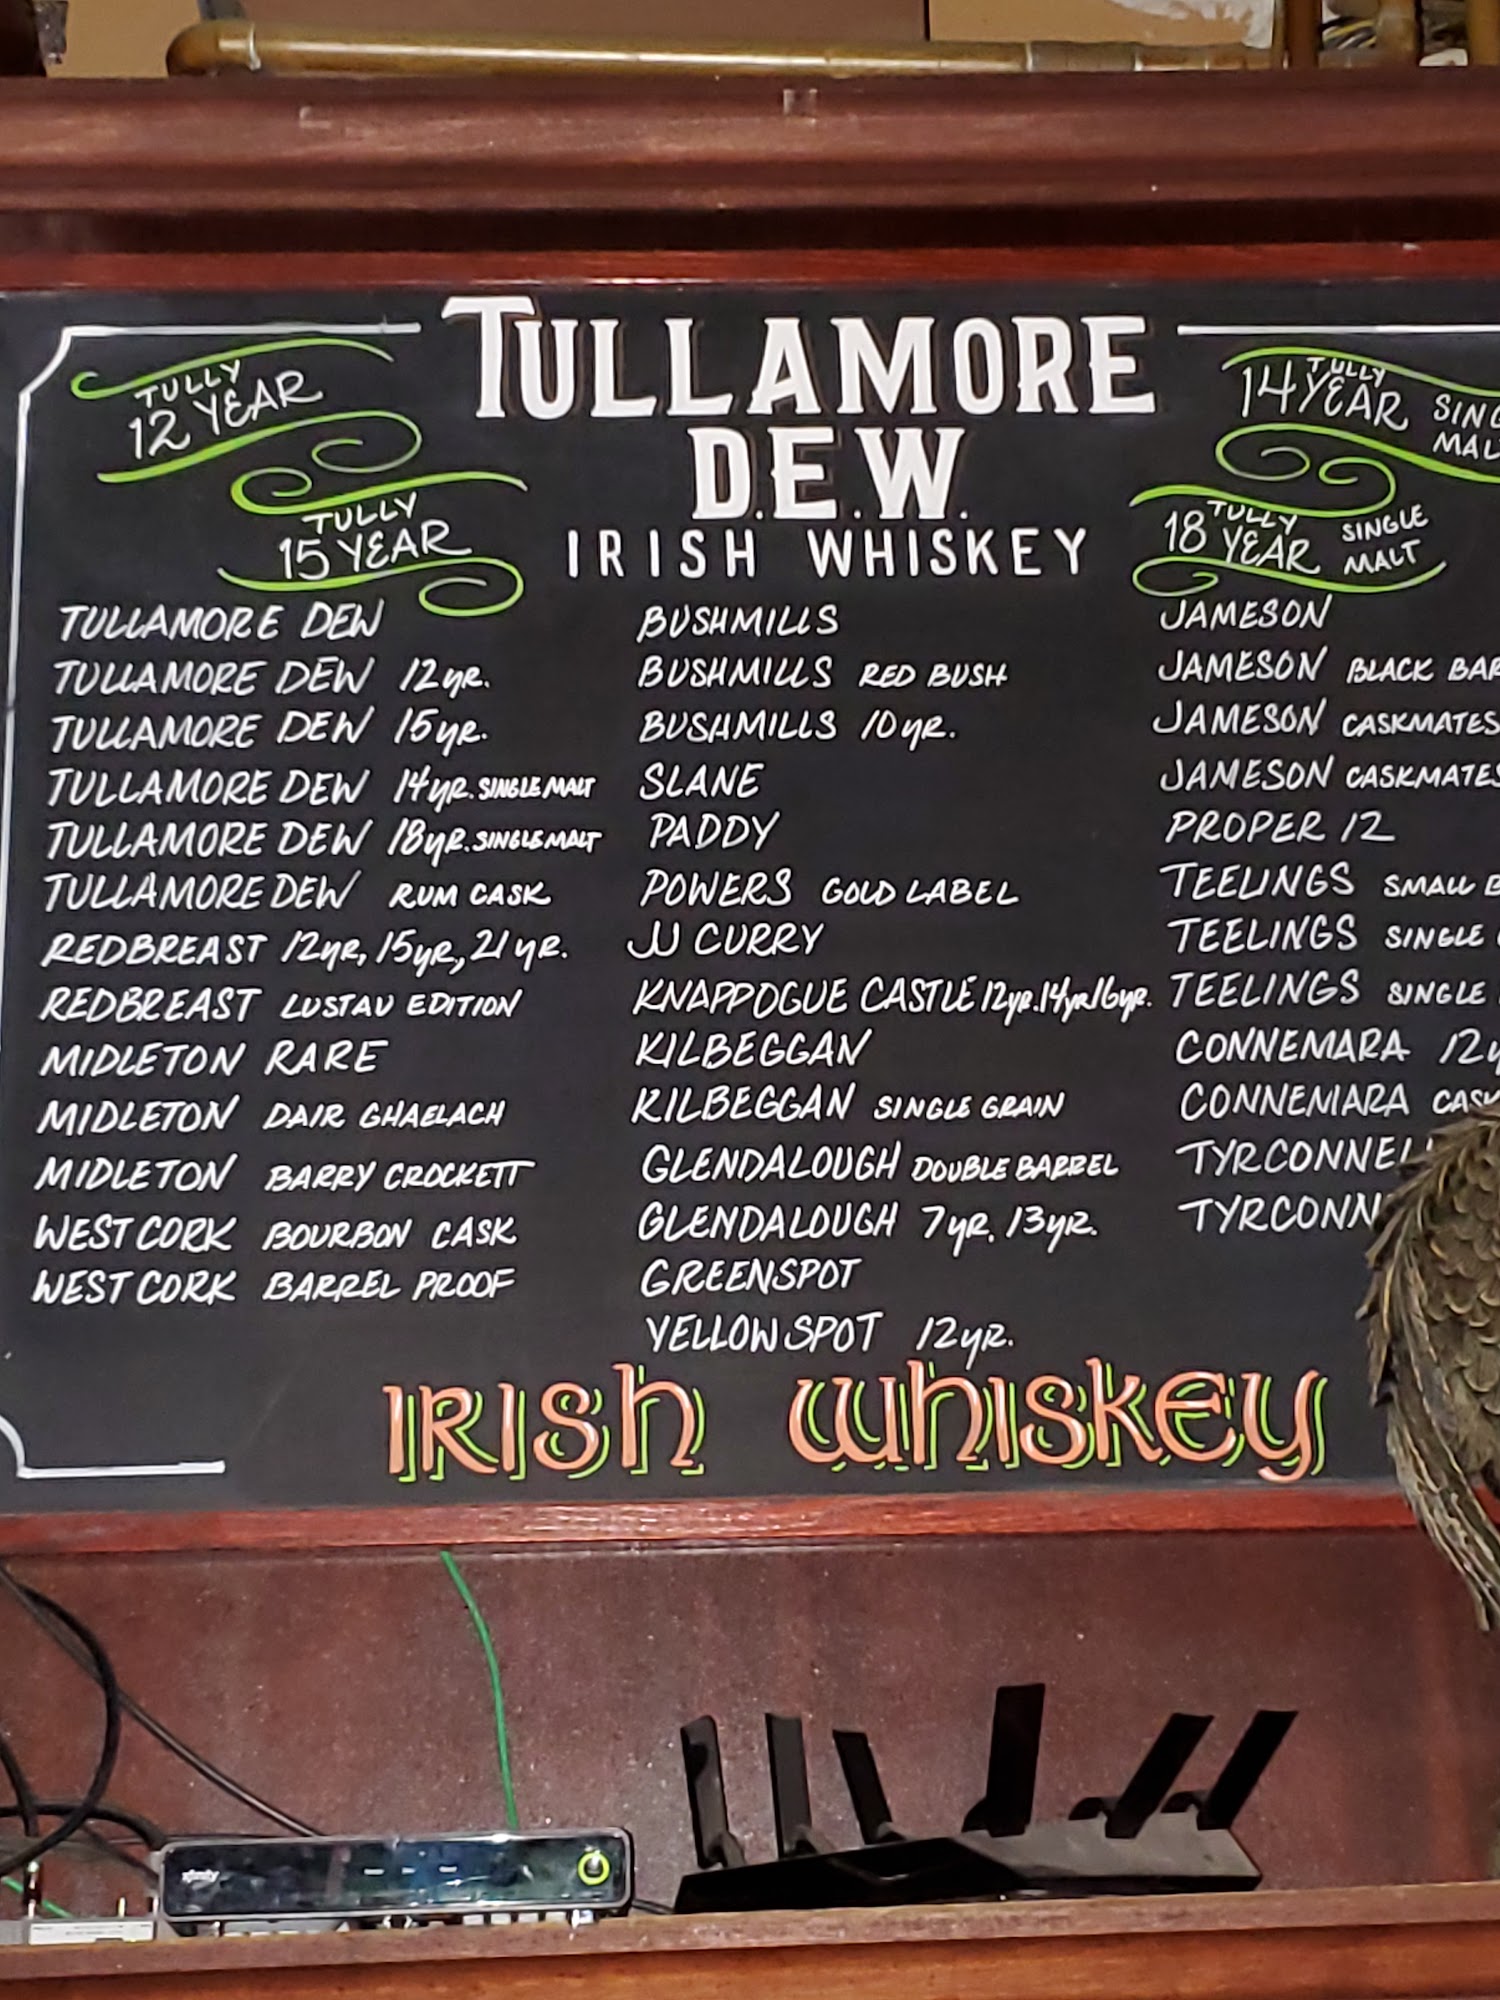 TULLAMORE
D.E.W.
IRISH WHISKEY
TULLY
12 YEAR
TULLY
15 YEAR
TULLY
14 YEAR
TULLY
18 YEAR
SINGLE
MALT
TULLAMORE DEW
TULLAMORE DEW 12yr.
TULLAMORE DEW 15yr.
TULLAMORE DEW 14yr. SINGLE MALT
TULLAMORE DEW 18yr. SINGLE MALT
TULLAMORE DEW RUM CASK
REDBREAST 12yr, 15yr, 21yr.
REDBREAST LUSTAU EDITION
MIDLETON RARE
MIDLETON DAIR GHAELACH
MIDLETON BARRY CROCKETT
WEST CORK BOURBON CASK
WEST CORK BARREL PROOF
BUSHMILLS
BUSHMILLS RED BUSH
BUSHMILLS 10yr.
SLANE
PADDY
POWERS GOLD LABEL
JJ CURRY
KNAPPOGUE CASTLE 12yr. 14yr 16yr.
KILBEGGAN
KILBEGGAN SINGLE GRAIN
GLENDALOUGH DOUBLE BARREL
GLENDALOUGH 7yr. 13yr.
GREENSPOT
YELLOW SPOT 12yr.
JAMESON
JAMESON BLACK BAR
JAMESON CASKMATES
JAMESON CASKMATES
PROPER 12
TEELINGS SMALL B
TEELINGS SINGLE
TEELINGS SINGLE
CONNEMARA 12y
CONNEMARA CASK
TYRCONNEL
TYRCONN
IRISH WHISKEY
xfinity